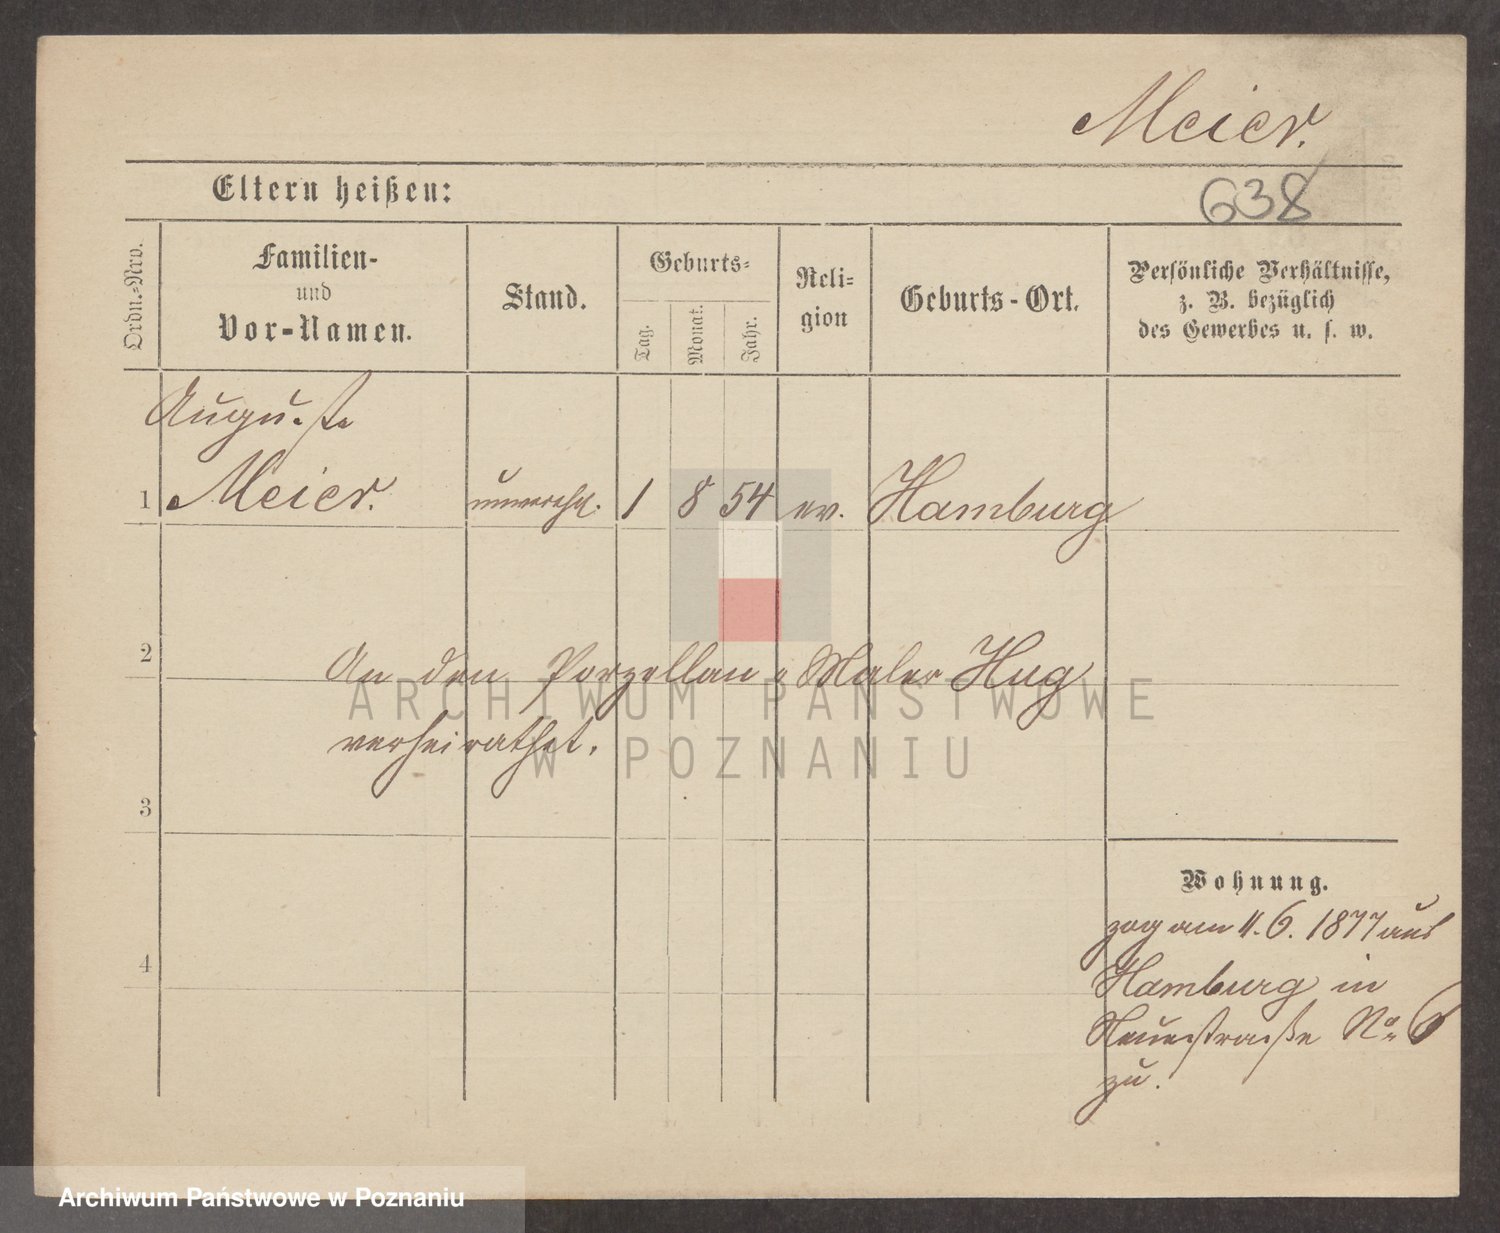 Meier.
Eltern heißen:
638
Ordn.-Nro.
Familien-
und
Vor-Namen.
Stand.
Geburts-
Tag.
Monat.
Jahr.
Reli-
gion
Geburts-Ort.
Persönliche Verhältnisse,
z. B. bezüglich
des Gewerbes u. s. w.
Auguste
1 Meier. unverehl. 1 8 54 ev. Hamburg
2
An den Porzellan-Maler Hug
verheirathet.
ARCHIWUM PAŃSTWOWE
W POZNANIU
3
Wohnung.
zog am 11.6.1877 aus
4
Hamburg in
Neuestraße No 6
zu.
Archiwum Państwowe w Poznaniu